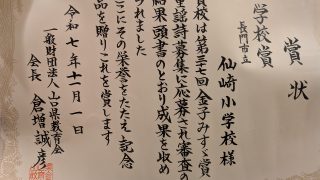 賞状
学校賞
長門市立
仙崎小学校様
貴校は第三七回金子みすゞ賞
童謡詩募集に応募され審査の
結果頭書のとおり成果を収め
られました
ここにその栄誉をたたえ記念
品を贈りこれを賞します
令和七年十月一日
一般財団法人山口県教育会
会長 倉増誠彦